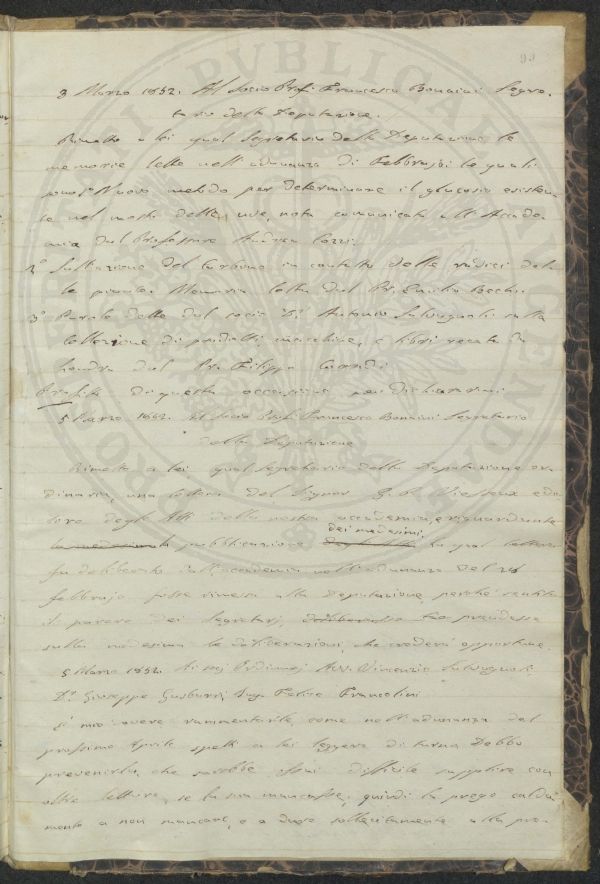 99
3 Marzo 1852. Al Socio Prof. Francesco Bonaini Segre-
tario della Deputazione.
Rimetto a lei qual Segretario della Deputazione le
memorie lette nell'adunanza di Febbrajo: le quali
sono 1° Nuovo metodo per determinare il glucosio esisten-
te nel mosto delle uve, nota comunicata all'Accade-
mia dal Professore Andrea Cozzi.
2° Sull'azione del Carbone in contatto delle radici del-
le piante. Memoria letta dal Pr. Emilio Bechi.
3° Parole dette dal socio Dr. Antonio Salvagnoli sulla
collezione di prodotti, macchine, e libri recata da
Londra dal Pre Filippo Corridi
Profitto di questa occasione per dichiararmi
5 Marzo 1852. Al Socio Prof. Francesco Bonaini Segretario
della Deputazione
Rimetto a lei qual Segretario della Deputazione or-
dinaria, una lettera del Signor G. P. Vieusseux edi-
tore degli Atti della nostra accademia, e riguardante
la pubblicazione dei medesimi, la qual lettera
fu deliberato dall'accademia nell'adunanza del
febbrajo fosse rimessa alla Deputazione, perché sentito
il parere dei Segretarj, prendesse
sulla medesima le deliberazioni, che crederà opportune.
5 Marzo 1852. Ai Socj Ordinarj Avv. Vincenzio Salvagnoli,
Dr. Giuseppe Gasbarri, Ing. Felice Francolini
È mio dovere rammentarle come nell'adunanza del
prossimo Aprile spetti a lei leggere di turno. Debbo
prevenirla, che sarebbe assai difficile supplire con
altre letture, se la sua mancasse, quindi la prego calda-
mente a non mancare, e a dare sollecitamente alla pre-